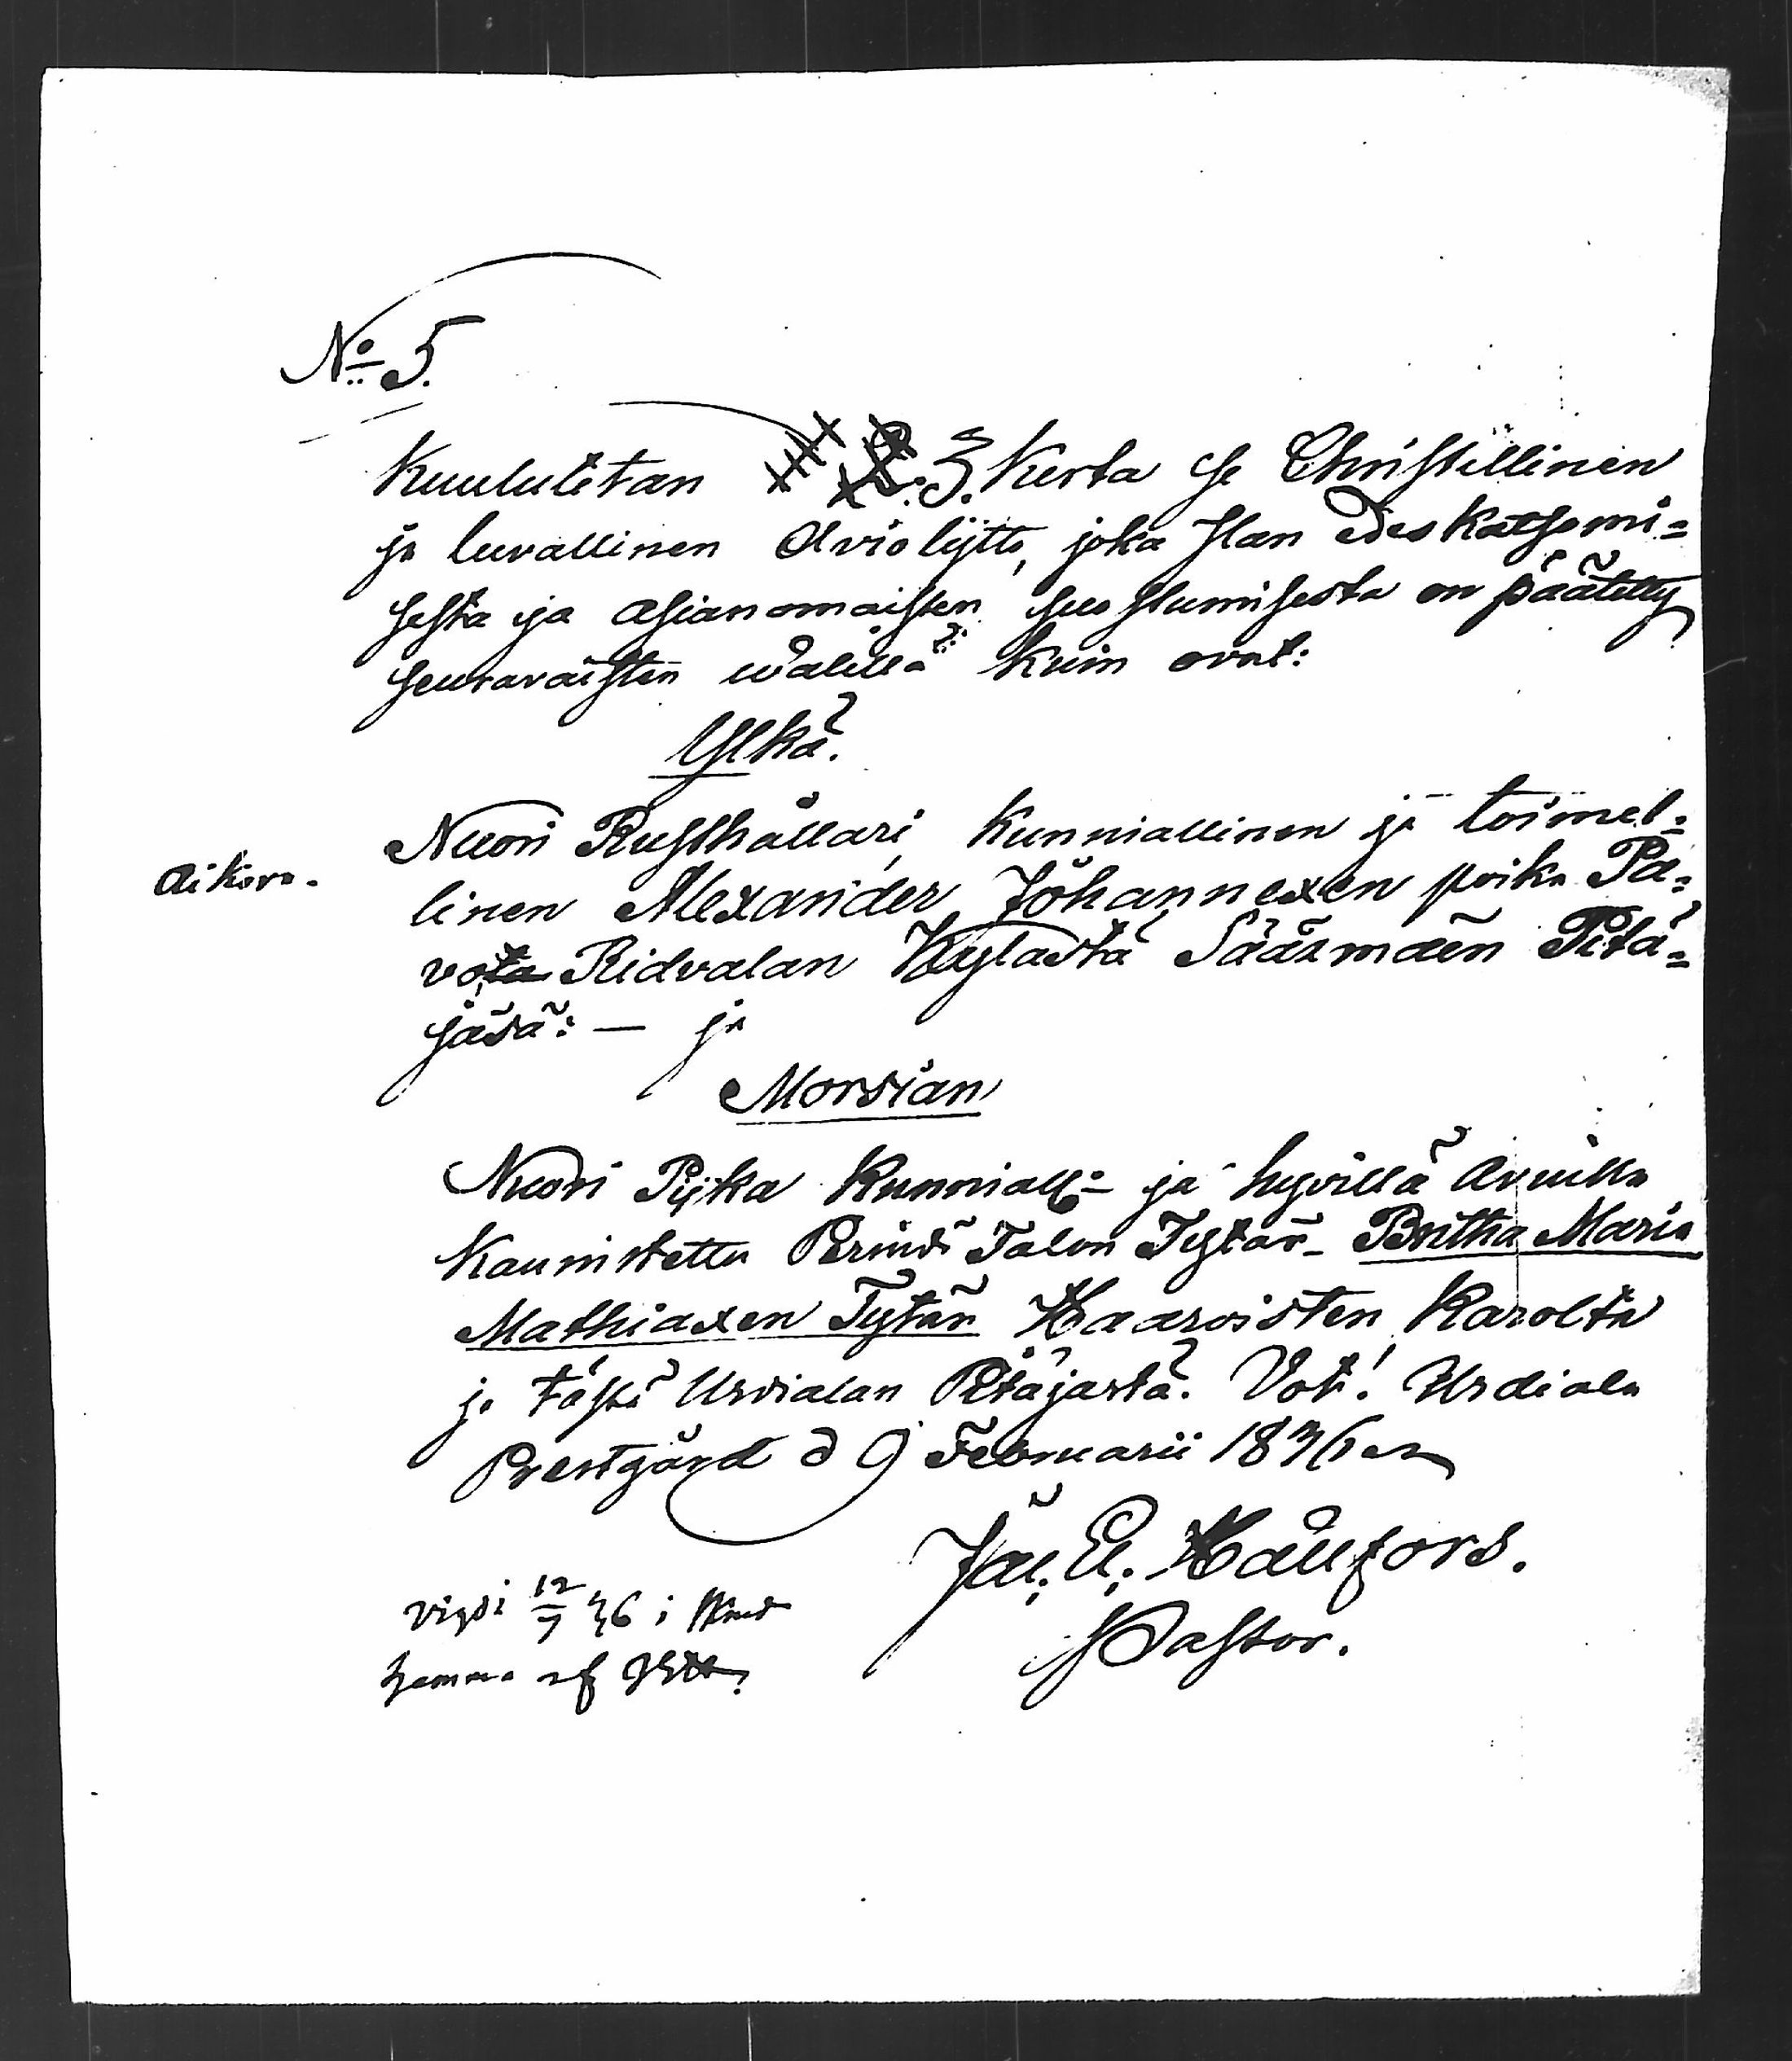 No 5.
Kuulutetan 3. Kerta se Christillinen
ja luvallinen Avioliitto, joka Ilan Edeskatsomi=
sesta ja asianomaisten suostumisesta on päätetty
seuraavaisten wälillä Kuin ovat:
Ylkä.
Nuori Rusthållari, Kunniallinen ja toimel=
Aikora.
linen Alexander Johannexen poika Pa=
vola Ridvalan Kylästä Sääxmäen Pitä=
jäsä: — ja
Morsian
Nuori Pijka Kunniall:- ja hyvillä Avuilla
Kaunistettu Perindö Talon Tytär - Britha Maria
Mathiaxen Tytär Haaroisten Karolta
ja tästä Urdialan Pitäjästä. Vot! Urdiala
Prestgård d 9 Februarii 1836
Jac. El. Hällfors.
Pastor.
vigdi 12/7 36 i
hemma af